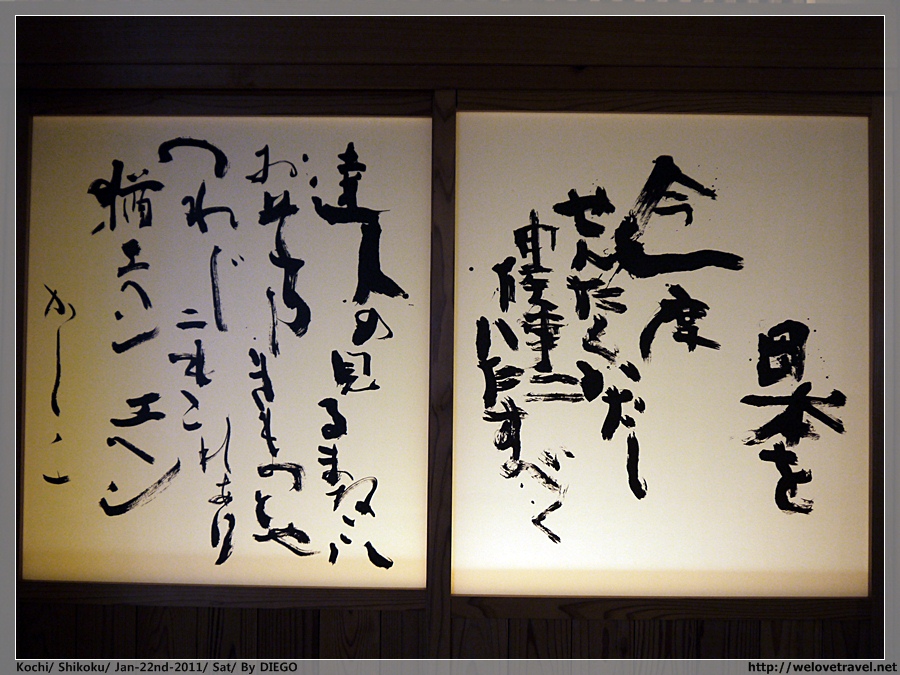 日本を
今一度
せんたくいたし
申候事ニ
いたすべく
達人の見るまなこハ
おそろしきものとや
つれ〲ニもこれあり
猶エヘンエヘン
かしこ
Kochi/ Shikoku/ Jan-22nd-2011/ Sat/ By DIEGO
http://welovetravel.net